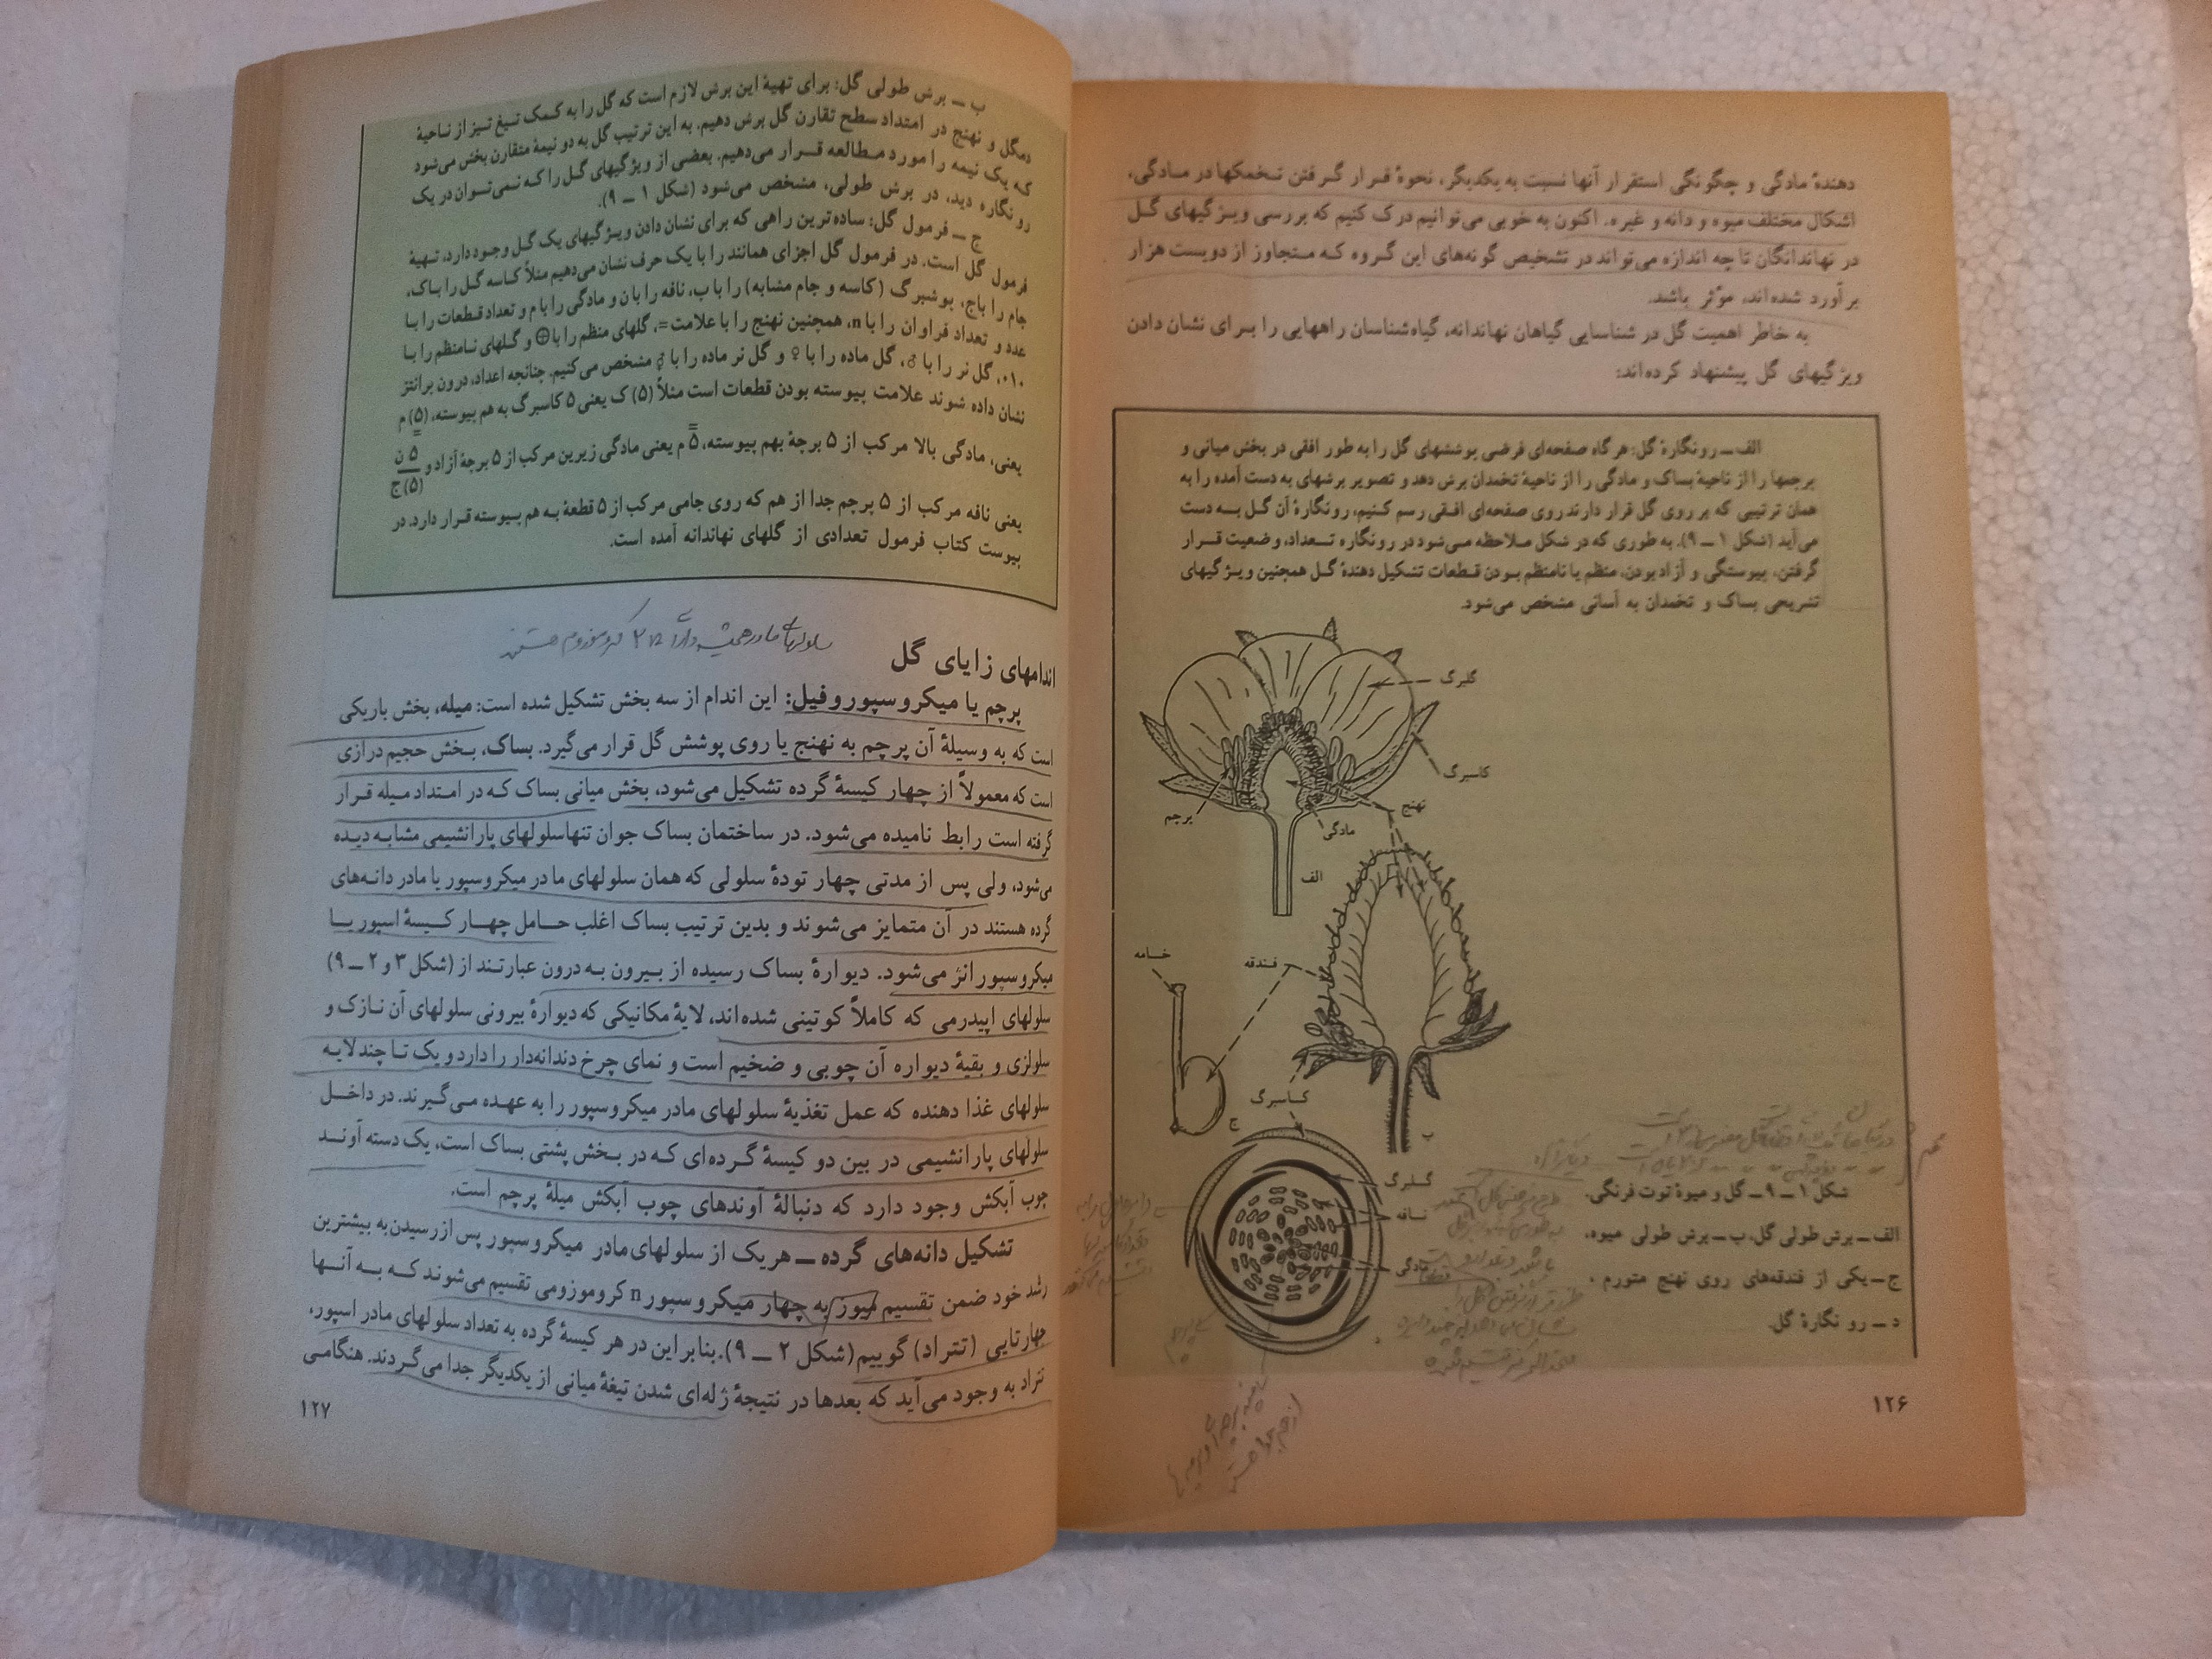 دهندهٔ مادگی و چگونگی استقرار آنها نسبت به یکدیگر، نحوهٔ قرار گرفتن تخمکها در مادگی،
اشکال مختلف میوه و دانه و غیره. اکنون به خوبی می‌توانیم درک کنیم که بررسی ویژگیهای گل
در نهاندانگان تا چه اندازه می‌تواند در تشخیص گونه‌های این گروه که متجاوز از دویست هزار
برآورد شده‌اند، مؤثر باشد.
به خاطر اهمیت گل در شناسایی گیاهان نهاندانه، گیاه‌شناسان راههایی را برای نشان دادن
ویژگیهای گل پیشنهاد کرده‌اند:
الف ــ رونگارهٔ گل: هرگاه صفحه‌ای فرضی پوششهای گل را به طور افقی در بخش میانی و
پرچمها را از ناحیهٔ بساک و مادگی را از ناحیهٔ تخمدان برش دهد و تصویر برشهای به دست آمده را به
همان ترتیبی که بر روی گل قرار دارند روی صفحه‌ای افقی رسم کنیم، رونگارهٔ آن گل به دست
می‌آید (شکل ۱ ــ ۹). به طوری که در شکل ملاحظه می‌شود در رونگاره تعداد، وضعیت قرار
گرفتن، پیوستگی و آزاد بودن، منظم یا نامنظم بودن قطعات تشکیل دهندهٔ گل همچنین ویژگیهای
تشریحی بساک و تخمدان به آسانی مشخص می‌شود.
گلبرگ
کاسبرگ
نهنج
مادگی
پرچم
الف
خامه
فندقه
کاسبرگ
ج
ب
گلبرگ
نافه
مادگی
د
شکل ۱ ــ ۹ ــ گل و میوهٔ توت فرنگی.
الف ــ برش طولی گل، ب ــ برش طولی میوه،
ج ــ یکی از فندقه‌های روی نهنج متورم،
د ــ رو نگارهٔ گل.
۱۲۶
ب ــ برش طولی گل: برای تهیهٔ این برش لازم است که گل را به کمک تیغ تیز از ناحیهٔ
دمگل و نهنج در امتداد سطح تقارن گل برش دهیم. به این ترتیب گل به دو نیمهٔ متقارن بخش می‌شود
که یک نیمه را مورد مطالعه قرار می‌دهیم. بعضی از ویژگیهای گل را که نمی‌توان در یک
رو نگاره دید، در برش طولی، مشخص می‌شود (شکل ۱ ــ ۹).
ج ــ فرمول گل: ساده‌ترین راهی که برای نشان دادن ویژگیهای یک گل وجود دارد، تهیهٔ
فرمول گل است. در فرمول گل اجزای همانند را با یک حرف نشان می‌دهیم مثلاً کاسه گل را باک،
جام را باج، پوشبرگ (کاسه و جام مشابه) را با ب، نافه را بان و مادگی را با م و تعداد قطعات را با
عدد و تعداد فراوان را با n، همچنین نهنج را با علامت =، گلهای منظم را با ⊕ و گلهای نامنظم را با
۰۱۰، گل نر را با ♂، گل ماده را با ♀ و گل نر ماده را با ⚥ مشخص می‌کنیم. چنانچه اعداد، درون پرانتز
نشان داده شوند علامت پیوسته بودن قطعات است مثلاً (۵) ک یعنی ۵ کاسبرگ به هم پیوسته، (۵) م
یعنی، مادگی بالا مرکب از ۵ برچهٔ بهم پیوسته، ۵ م یعنی مادگی زیرین مرکب از ۵ برچهٔ آزاد و ۵ ن
(۵) ج
یعنی نافه مرکب از ۵ پرچم جدا از هم که روی جامی مرکب از ۵ قطعهٔ به هم پیوسته قرار دارد. در
پیوست کتاب فرمول تعدادی از گلهای نهاندانه آمده است.
سلولهای مادر همیشه دارای ۲n کروموزوم هستند
اندامهای زایای گل
پرچم یا میکروسپوروفیل: این اندام از سه بخش تشکیل شده است: میله، بخش باریکی
است که به وسیلهٔ آن پرچم به نهنج یا روی پوشش گل قرار می‌گیرد. بساک، بخش حجیم درازی
است که معمولاً از چهار کیسهٔ گرده تشکیل می‌شود، بخش میانی بساک که در امتداد میله قرار
گرفته است رابط نامیده می‌شود. در ساختمان بساک جوان تنها سلولهای پارانشیمی مشابه دیده
می‌شود، ولی پس از مدتی چهار تودهٔ سلولی که همان سلولهای مادر میکروسپور یا مادر دانه‌های
گرده هستند در آن متمایز می‌شوند و بدین ترتیب بساک اغلب حامل چهار کیسهٔ اسپور یا
میکروسپورانژ می‌شود. دیوارهٔ بساک رسیده از بیرون به درون عبارتند از (شکل ۳ و ۲ ــ ۹)
سلولهای اپیدرمی که کاملاً کوتینی شده‌اند، لایهٔ مکانیکی که دیوارهٔ بیرونی سلولهای آن نازک و
سلولزی و بقیهٔ دیواره آن چوبی و ضخیم است و نمای چرخ دندانه‌دار را دارد و یک تا چند لایه
سلولهای غذا دهنده که عمل تغذیهٔ سلولهای مادر میکروسپور را به عهده می‌گیرند. در داخل
سلولهای پارانشیمی در بین دو کیسهٔ گرده‌ای که در بخش پشتی بساک است، یک دسته آوند
چوب آبکش وجود دارد که دنبالهٔ آوندهای چوب آبکش میلهٔ پرچم است.
تشکیل دانه‌های گرده ــ هر یک از سلولهای مادر میکروسپور پس از رسیدن به بیشترین
رشد خود ضمن تقسیم میوز به چهار میکروسپور n کروموزومی تقسیم می‌شوند که به آنها
چهارتایی (تتراد) گوییم (شکل ۲ ــ ۹). بنابراین در هر کیسهٔ گرده به تعداد سلولهای مادر اسپور،
تتراد به وجود می‌آید که بعدها در نتیجهٔ ژله‌ای شدن تیغهٔ میانی از یکدیگر جدا می‌گردند. هنگامی
۱۲۷